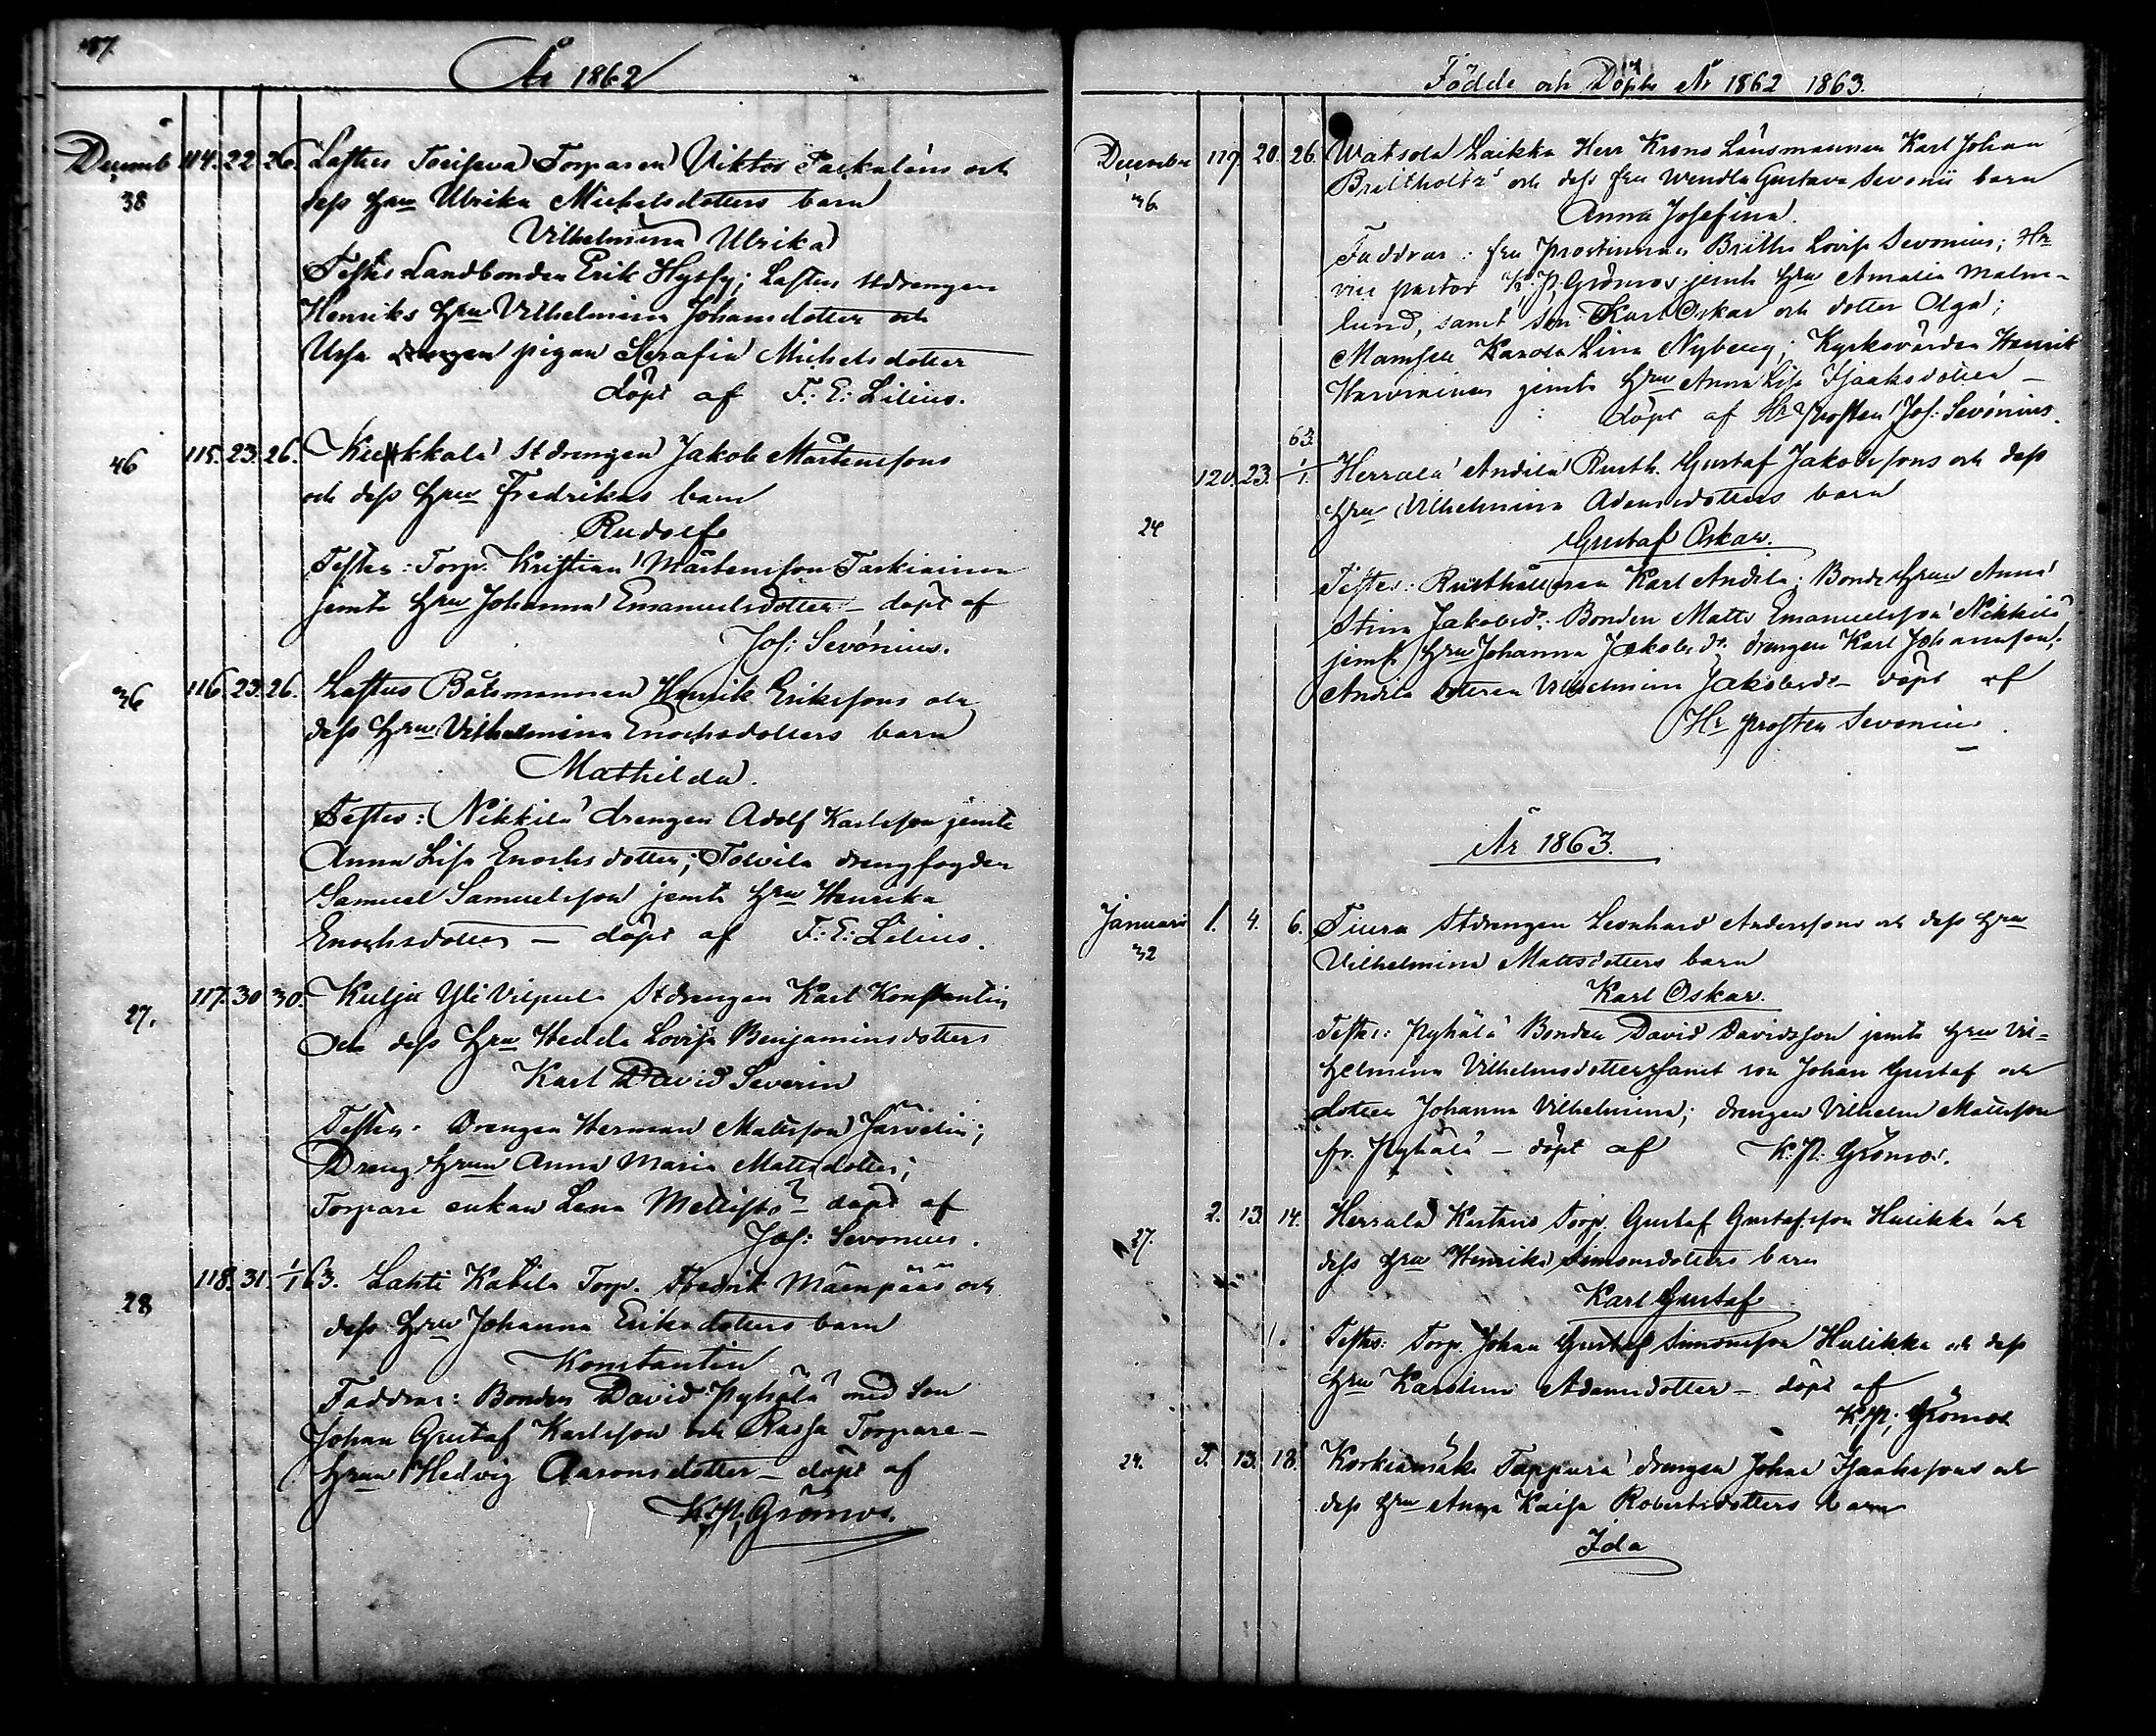 87.
År 1862
Decemb 114. 22. 26. Laftus Torpare Viktor och
38 dess hru Ulrika Michelsdotters barn
Vilhelmina Ulrika
Testes Landbonden Erik Laftus stdrengen
Henriks hru Vilhelmina Johansdotter och
pigan Serafia Michelsdotter
döpt af F: E: Lilius.
46 115. 23. 26. stdrengen Jakob Mårtenssons
och dess hru Fredrikas barn
Rudolf
Testes: Torp. Kristian Mårtensson Tarkiainen
jemte hru Johanna Emanuelsdotter – döpt af
Jos: Sevónius.
36 116. 23. 26. Laftus Båtsmannen Henrik Erikssons och
dess hru Vilhelmina Enochsdotters barn
Mathilda.
Testes: Nikkilä drengen Adolf Karlsson jemte
Anna Lisa Enochsdotter; Tolvila drengfogden
Samuel Samuelsson jemte hru Henrika
Enochsdotter – döpt af F: E: Lilius.
27. 117. 30 30. Kulju Yli Vilpula Stdrengen Karl Konstantin
och dess hru Hedda Lovisa Benjaminsdotters
Karl David Severin
Testes. Drengen Herman Mattsson Järvelin;
Dreng hrun Anna Maria Mattsdotter;
Torpare enkan Lena döpt af
Jos: Sevonius.
28 118. 31. 1/1 63. Lahti Kabila Torp. Fredrik Mäenpääs och
dess hru Johanna Eriksdotters barn
Konstantin
Faddrar: Bonden David Pyhälä med son
Johan Gustaf Karlsson och Torpare-
hrun Hedvig Aaronsdotter – döpt af
K. P. Grönros.
Födde och Döpte År 1862 1863.
December 119. 20. 26. Watsola Laikka Herr Krono Länsmannen Karl Johan
36. och dess fru Wendla Gustava Sevonii barn
Anna Josefina.
Faddrar: fru Prostinnan Lovisa Sevonius; Hr
vice pastor K. P. Grönros jemte hru Amalia Malm-
lund, samt son Karl Oskar och dotter Olga;
Mamsell Karola Lina Nyberg; Kyrkovärden Henrik
jemte hru Anna Lisa Isaaksdotter –
döpt af Hr Prosten Jos: Sevónius.
63.
120. 23. 1/1. Herrala Andila Rusth. Gustaf Jakobssons och dess
hru Vilhelmina Adamsdotters barn
24 Gustaf Oskar.
Testes: Rusthållaren Karl Andila; Bonde hrun Anna
Stina Jakobsd. Bonden Matts Emanuelsson Nikkilä
jemte hru Johanna Jakobsdr. drengen Karl Johansson;
Andila dottren Vilhelmina Jakobsdr – döpt af
Hr prosten Sevonius.
År 1863.
Januari 1. 4. 6. Tiura Stdrengen Leonhard Anderssons och dess hru
32 Vilhelmina Mattsdotters barn
Karl Oskar.
Testes: Pyhälä Bonden David Davidsson jemte hru Vil-
helmina Vilhelmsdotter samt son Johan Gustaf och
dotter Johanna Vilhelmina; drengen Vilhelm Mattsson
fr. Pyhälä – döpt af K. P. Grönros.
27. 2. 13. 14. Herrala Torp. Gustaf Gustafsson Hulikka och
dess hru Henrika Simonsdotters barn
Karl Gustaf
Testes: Torp. Johan Gustaf Simonsson Hulikka och dess
hru Karolina Adamsdotter – döpt af
K. P. Grönros
24. 3. 13. 18. Korkiamäki Tappura drengen Johan Isaakssons och
dess hru Anna Kaisa Robertsdotters barn
Ida